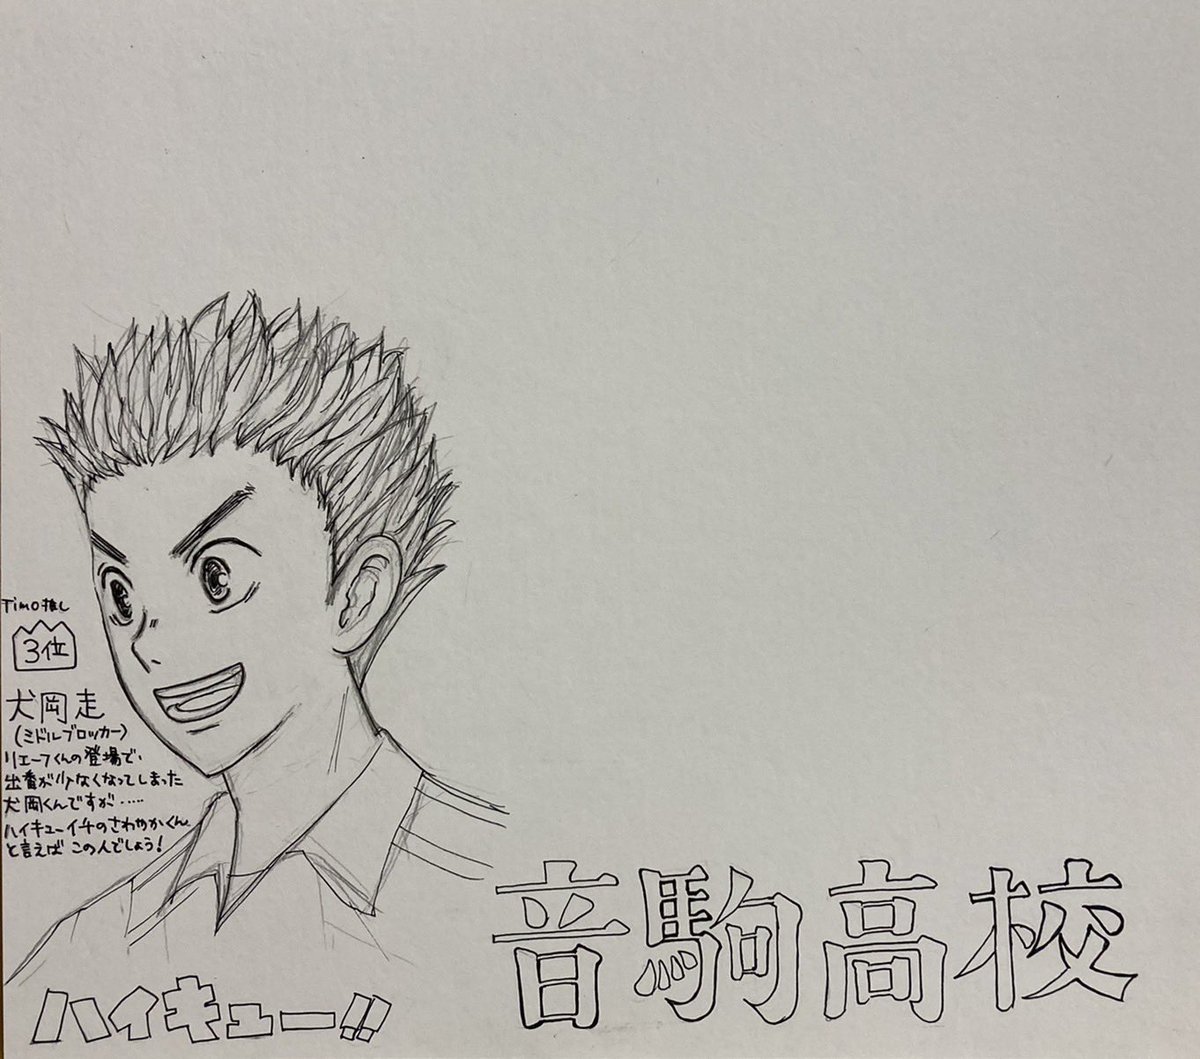 Timo推し
3位
犬岡走
(ミドルブロッカー)
リエーフくんの登場で、
出番が少なくなってしまった
犬岡くんですが‥‥‥
ハイキューイチのさわやかくん
と言えば この人でしょう!
ハイキュー!!
音駒高校